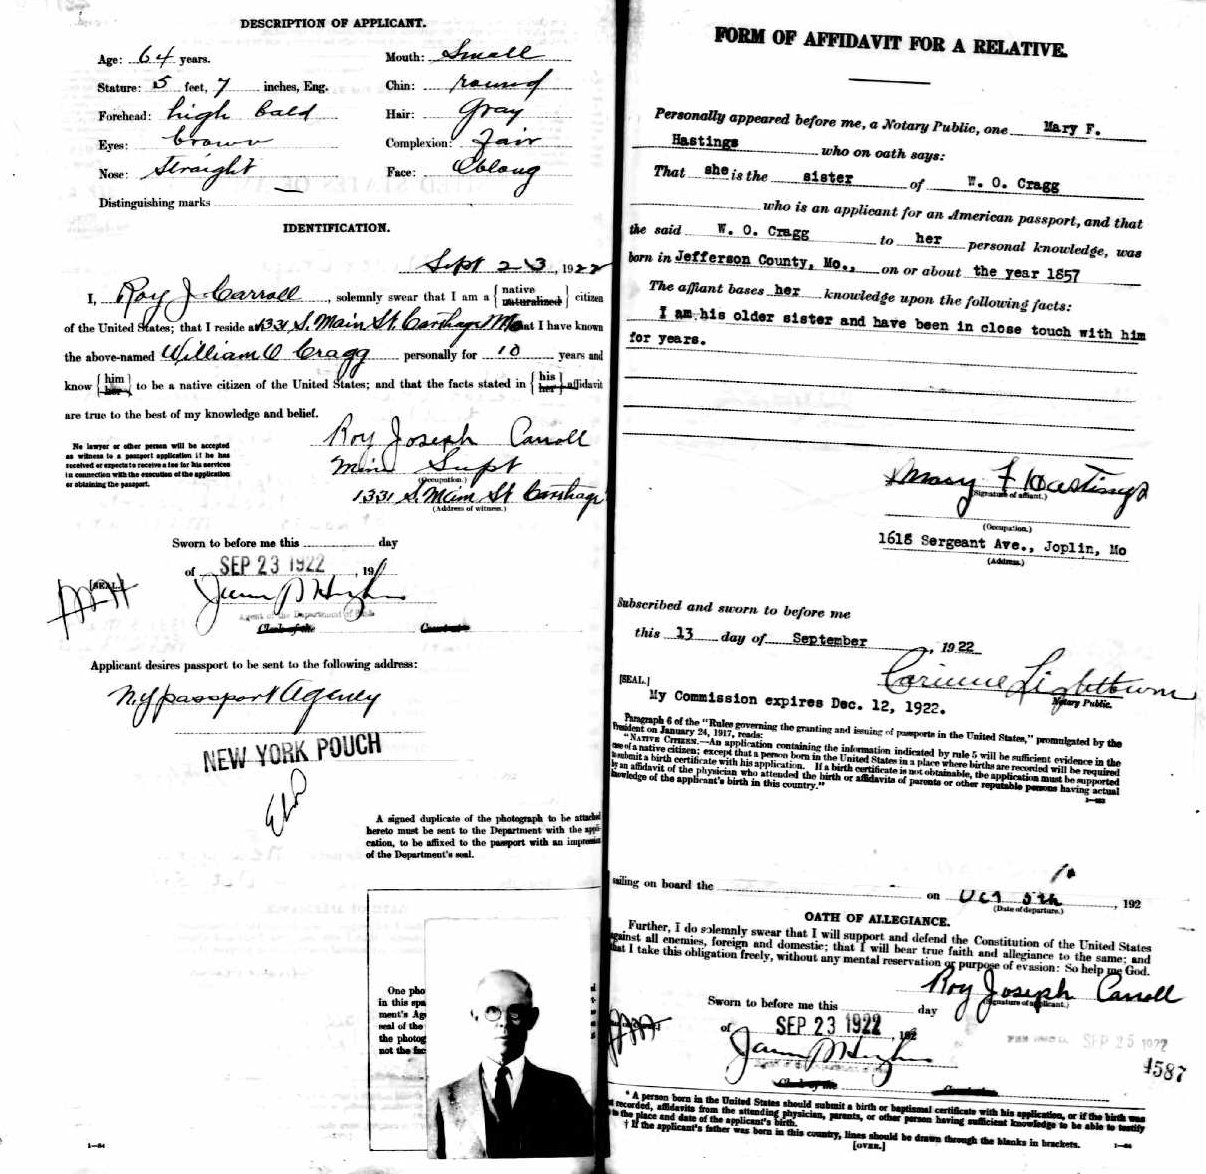 DESCRIPTION OF APPLICANT.
Age: 64 years.
Mouth: Small
Stature: 5 feet, 7 inches, Eng.
Chin: round
Forehead: high bald
Hair: Gray
Eyes: brown
Complexion: Fair
Nose: Straight
Face: Oblong
Distinguishing marks
IDENTIFICATION.
Sept 23, 1922
I, Roy J Carroll, solemnly swear that I am a { native naturalized } citizen
of the United States; that I reside at 1331 S. Main St. Carthage Mo that I have known
the above-named William O Cragg personally for 10 years and
know { him her } to be a native citizen of the United States; and that the facts stated in { his her } affidavit
are true to the best of my knowledge and belief.
No lawyer or other person will be accepted
as witness to a passport application if he has
received or expects to receive a fee for his services
in connection with the execution of the application
or obtaining the passport.
Roy Joseph Carroll
Mine Supt
(Occupation.)
1331 S. Main St Carthage
(Address of witness.)
Sworn to before me this day
of SEP 23 1922, 19
[SEAL.]
Agent of the Department of State
Clerk of the Court at
Applicant desires passport to be sent to the following address:
N.Y. passport Agency
NEW YORK POUCH
A signed duplicate of the photograph to be attached
hereto must be sent to the Department with the appli-
cation, to be affixed to the passport with an impression
of the Department's seal.
One pho
in this spa
ment's Ag
seal of the
the photog
not the fac
1—84
FORM OF AFFIDAVIT FOR A RELATIVE.
Personally appeared before me, a Notary Public, one Mary F.
Hastings who on oath says:
That she is the sister of W. O. Cragg
who is an applicant for an American passport, and that
the said W. O. Cragg to her personal knowledge, was
born in Jefferson County, Mo., on or about the year 1857
The affiant bases her knowledge upon the following facts:
I am his older sister and have been in close touch with him
for years.
Mary F Hastings
(Signature of affiant.)
(Occupation.)
1615 Sergeant Ave., Joplin, Mo
(Address.)
Subscribed and sworn to before me
this 13 day of September, 1922
Corinne Lightburn
Notary Public.
[SEAL.]
My Commission expires Dec. 12, 1922.
Paragraph 6 of the "Rules governing the granting and issuing of passports in the United States," promulgated by the
President on January 24, 1917, reads:
"NATIVE CITIZEN.—An application containing the information indicated by rule 5 will be sufficient evidence in the
case of a native citizen; except that a person born in the United States in a place where births are recorded will be required
to submit a birth certificate with his application. If a birth certificate is not obtainable, the application must be supported
by an affidavit of the physician who attended the birth or affidavits of parents or other reputable persons having actual
knowledge of the applicant's birth in this country."
sailing on board the on Oct 5th, 192
(Date of departure.)
OATH OF ALLEGIANCE.
Further, I do solemnly swear that I will support and defend the Constitution of the United States
against all enemies, foreign and domestic; that I will bear true faith and allegiance to the same; and
that I take this obligation freely, without any mental reservation or purpose of evasion: So help me God.
Roy Joseph Carroll
(Signature of applicant.)
Sworn to before me this day
of SEP 23 1922, 192
SEP 25 1922
4587
Clerk of the Court at
* A person born in the United States should submit a birth or baptismal certificate with his application, or if the birth was
not recorded, affidavits from the attending physician, parents, or other person having sufficient knowledge to be able to testify
to the place and date of the applicant's birth.
† If the applicant's father was born in this country, lines should be drawn through the blanks in brackets.
[OVER.]
1—84